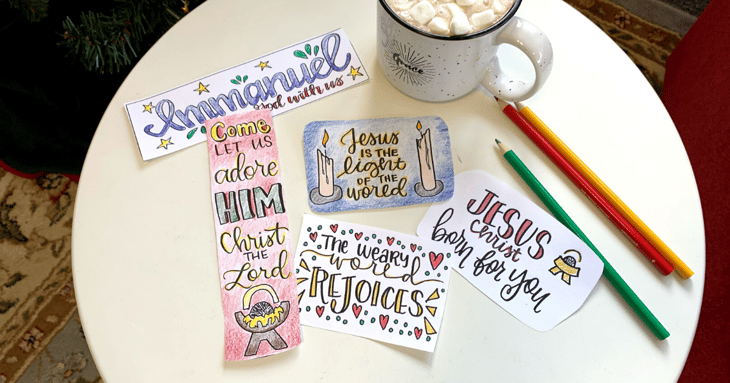 Emmanuel
God with us
Come
LET US
adore
HIM
Christ
THE
Lord
JESUS
IS THE
light
OF THE
world
THE WEARY
world
REJOICES
JESUS
Christ
born for you
Grace